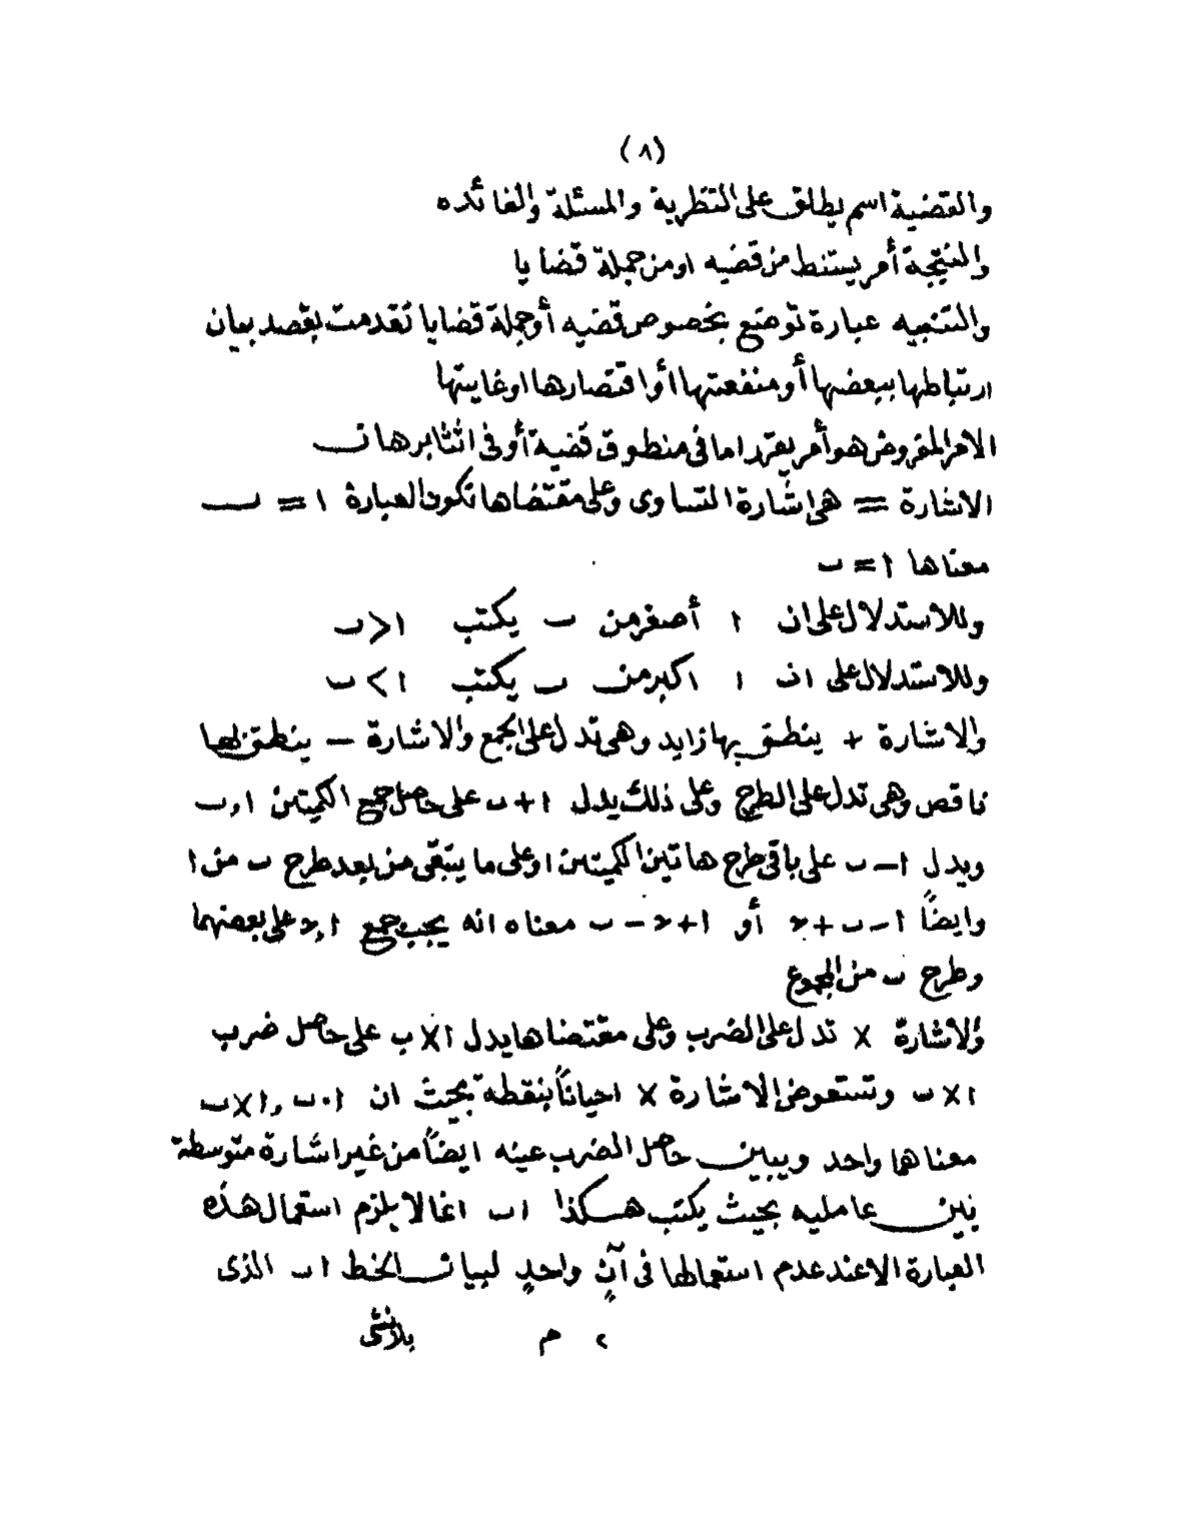 (٨)
والقضية اسم يطلق على النظرية والمسئلة والفائده
والنتيجة أمر يستنبط من قضيه او من جملة قضايا
والتنبيه عبارة توضع بخصوص قضيه أو جملة قضايا تقدمت بقصد بيان
ارتباطها ببعضها أو منفعتها أو اقتصارها او غايتها
الامر المفروض هو أمر يقرر اما فى منطوق قضية أو فى اثنا برهان
الاشارة = هى اشارة التساوى وعلى مقتضاها تكون العبارة ا = ب
معناها ا = ب
وللاستدلال على ان ا أصغر من ب يكتب ا>ب
وللاستدلال على ان ا اكبر من ب يكتب ا<ب
والاشارة + ينطق بها زايد وهى تدل على الجمع والاشارة − ينطق بها
ناقص وهى تدل على الطرح وعلى ذلك يدل ا+ب على حاصل جمع الكميتين ا,ب
ويدل ا−ب على باقى طرح هاتين الكميتين او على ما يتبقى من بعد طرح ب من ا
وايضًا ا−ب+حـ أو ا+حـ−ب معناه انه يجب جمع ا,حـ على بعضهما
وطرح ب من المجموع
والاشارة × تدل على الضرب وعلى مقتضاها يدل ا×ب على حاصل ضرب
ا×ب وتستعوض الاشارة × احيانًا بنقطة بحيث ان ا.ب,ا×ب
معناهما واحد ويبين حاصل الضرب عينه ايضًا من غير اشارة متوسطة
بين عامليه بحيث يكتب هكذا اب انما لا يلزم استعمال هذه
العبارة الا عند عدم استعمالها فى آنٍ واحدٍ لبيان الخط اب الذى
٢ م